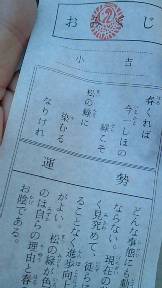 お じ
小 吉
春くれば
今一しほの
緑こそ
松の緑に
染むる
なりけれ
運 勢
どんな事態にも動
ならない。現在の
く見究めて、徒ら
ることなく進歩向上
がよい。松の緑が色
のは自らの理由と春
お陰である。